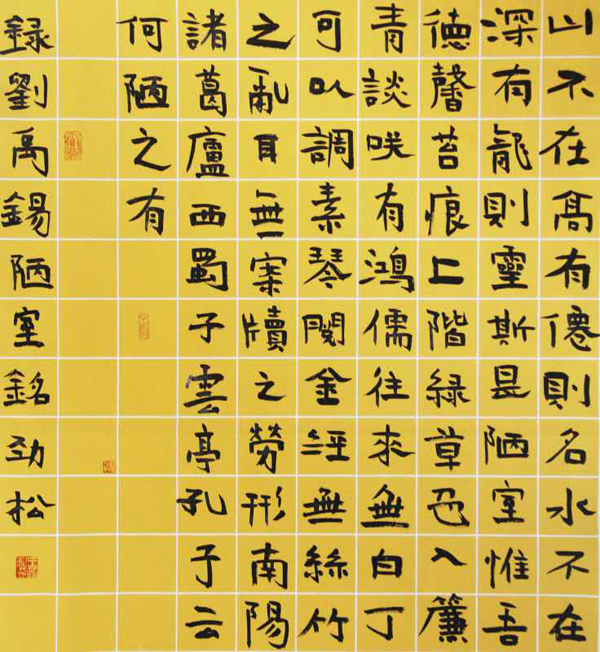 山不在髙有僊則名水不在
深有龍則靈斯是陋室惟吾
德馨苔痕上階緑草色入簾
青談咲有鴻儒往來無白丁
可以調素琴閱金經無絲竹
之亂耳無案牘之勞形南陽
諸葛廬西蜀子雲亭孔子云
何陋之有
録劉禹錫陋室銘劲松